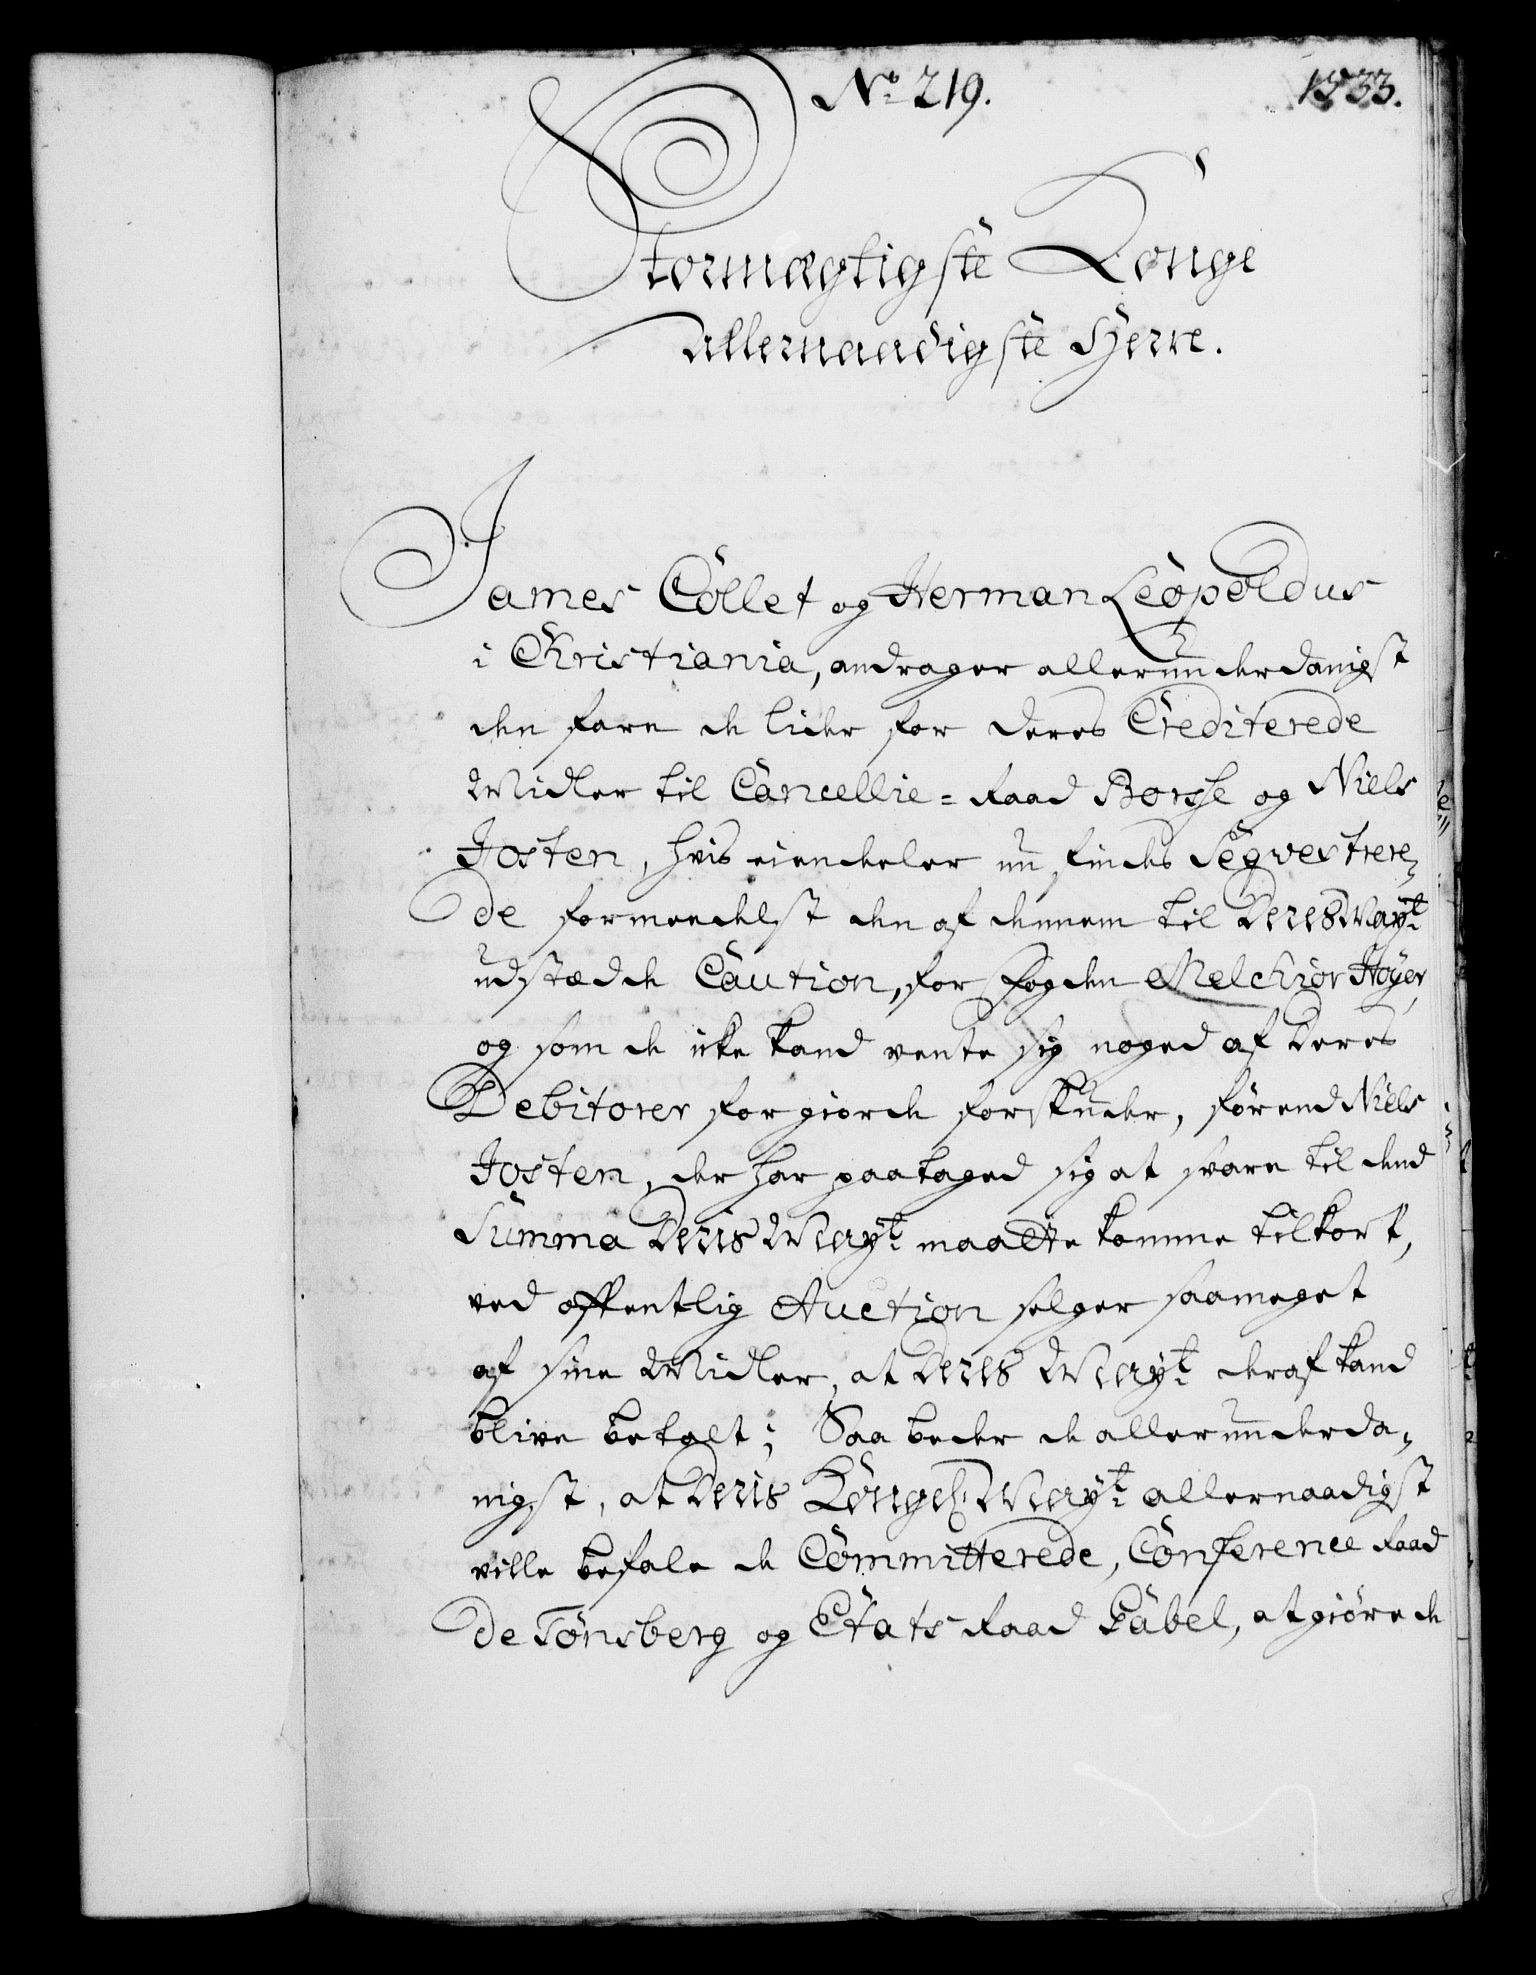 No 219. 1533.
Stormægtigste Konge
Allernaadigste Herre.
James Collet og Herman Leopoldus
i Christiania, andrager allerunderdanigst
den fare de lider for deres Crediterede
Midler til Cancellie=Raad Borse og Niels
Josten, hvis eiendeler nu findes Seqvestrere,,
de formedelst den af dennem til Deres Mayt
udstædde Caution, for Fogden Melchior Høyer,
og som de icke kand vente sig noged af Deres
Debitorer for giorde forskuder, førend Niels
Josten, der har paataged sig at svare til dend
Summa Deris Mayt maatte komme tilkort,
ved offentlig Auction selger saameget
af sine Midler, at Deres Mayt deraf kand
blive betalt; Saa beder de allerunderda,,
nigst, at Deris Kongel. Mayt allernaadigst
ville befale de Committerede, Conference Raad
de Tønsberg og Etats Raad Gabel, at giøre de